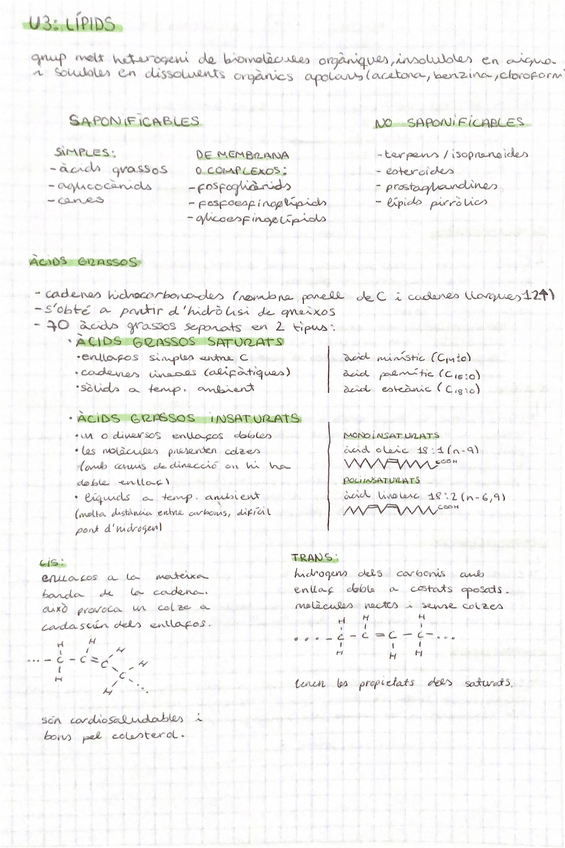 U3: LÍPIDS
grup molt heterogeni de biomolècules orgàniques, insolubles en aigua
i solubles en dissolvents orgànics apolars (acetona, benzina, cloroform
SAPONIFICABLES
NO SAPONIFICABLES
SIMPLES:
- àcids grassos
- aglucocènids
- cenes
DE MEMBRANA
O COMPLEXOS:
- fosfoglicènids
- fosfoesfingolípids
- glicoesfingolípids
- terpens / isoprenoides
- esteroides
- prostaglandines
- lípids pirròlics
ÀCIDS GRASSOS
- cadenes hidrocarbonades (nombre parell de C i cadenes llargues 12↑)
- s'obté a partir d'hidròlisi de greixos
- 70 àcids grassos separats en 2 tipus:
· ÀCIDS GRASSOS SATURATS
· enllaços simples entre C
· cadenes lineals (alifàtiques)
· sòlids a temp. ambient
àcid mirístic (C14:0)
àcid palmític (C16:0)
àcid esteàric (C18:0)
· ÀCIDS GRASSOS INSATURATS
· un o diversos enllaços dobles
· les molècules presenten colzes
(amb canvis de direcció on hi ha
doble enllaç)
· líquids a temp. ambient
(molta distància entre carbonis, difícil
pont d'hidrogen)
MONOINSATURATS
àcid oleic 18:1 (n-9)
COOH
POLIINSATURATS
àcid linoleic 18:2 (n-6,9)
COOH
CIS:
enllaços a la mateixa
banda de la cadena.
això provoca un colze a
cadascún dels enllaços.
H H
... - C - C = C H
H C H
H ...
són cardiosaludables i
bons pel colesterol.
TRANS:
hidrogens dels carbonis amb
enllaç doble a costats oposats.
molècules rectes i sense colzes
H H H
.... - C - C = C - C - ...
H H H
tenen les propietats dels saturats.